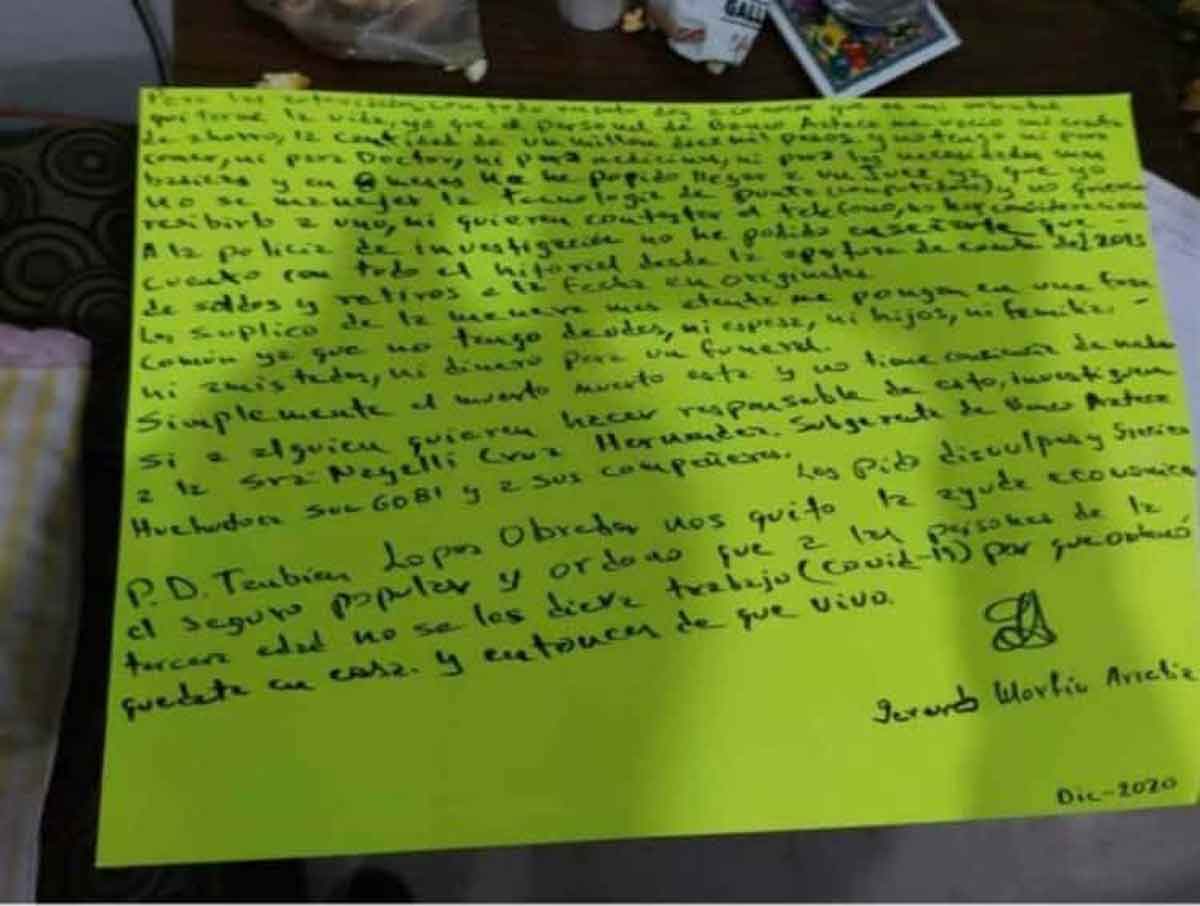 GALL
Para las autoridades
quitarme la vida, ya que el personal de Banco Azteca mi cuenta
de ahorro, la cantidad de un millon pesos y no tengo ni para
comer, ni para Doctor, ni para medicinas, ni para las necesidades mas
basicas y en 8 meses no he podido llegar a un Juez ya que yo
no se manejar la tecnologia de punta (computadoras) y no quieren
recibirlo a uno, ni quieren contestar el telefono, no hay
A la policia de investigación no he podido enseñarle que -
cuento con todo el historial desde la apertura de cuenta del 2015
de saldos y retiros a la fecha en originales
Les suplico de la manera mas atenta me pongan en una fosa
Común ya que no tengo deudos, ni esposa, ni hijos, ni familia. -
ni amistades, ni dinero para un funeral.
Simplemente el muerto muerto esta y no tiene conciencia de nada
Si a alguien quieren hacer responsable de esto, investiguen
a la Sra Nayelli Cruz Hernandez. Subgerente de Banco Azteca
Huehuetoca Suc 6081 y a sus compañeros.
Les pido disculpas y
P.D. Tanbien Lopes Obrador nos quito la ayuda economica
el seguro popular y ordeno que a las personas de la
tercera edad no se les diera trabajo (covid-19) por que
quedate en casa. y entonces de que vivo.
Gerardo Martin
Dic-2020